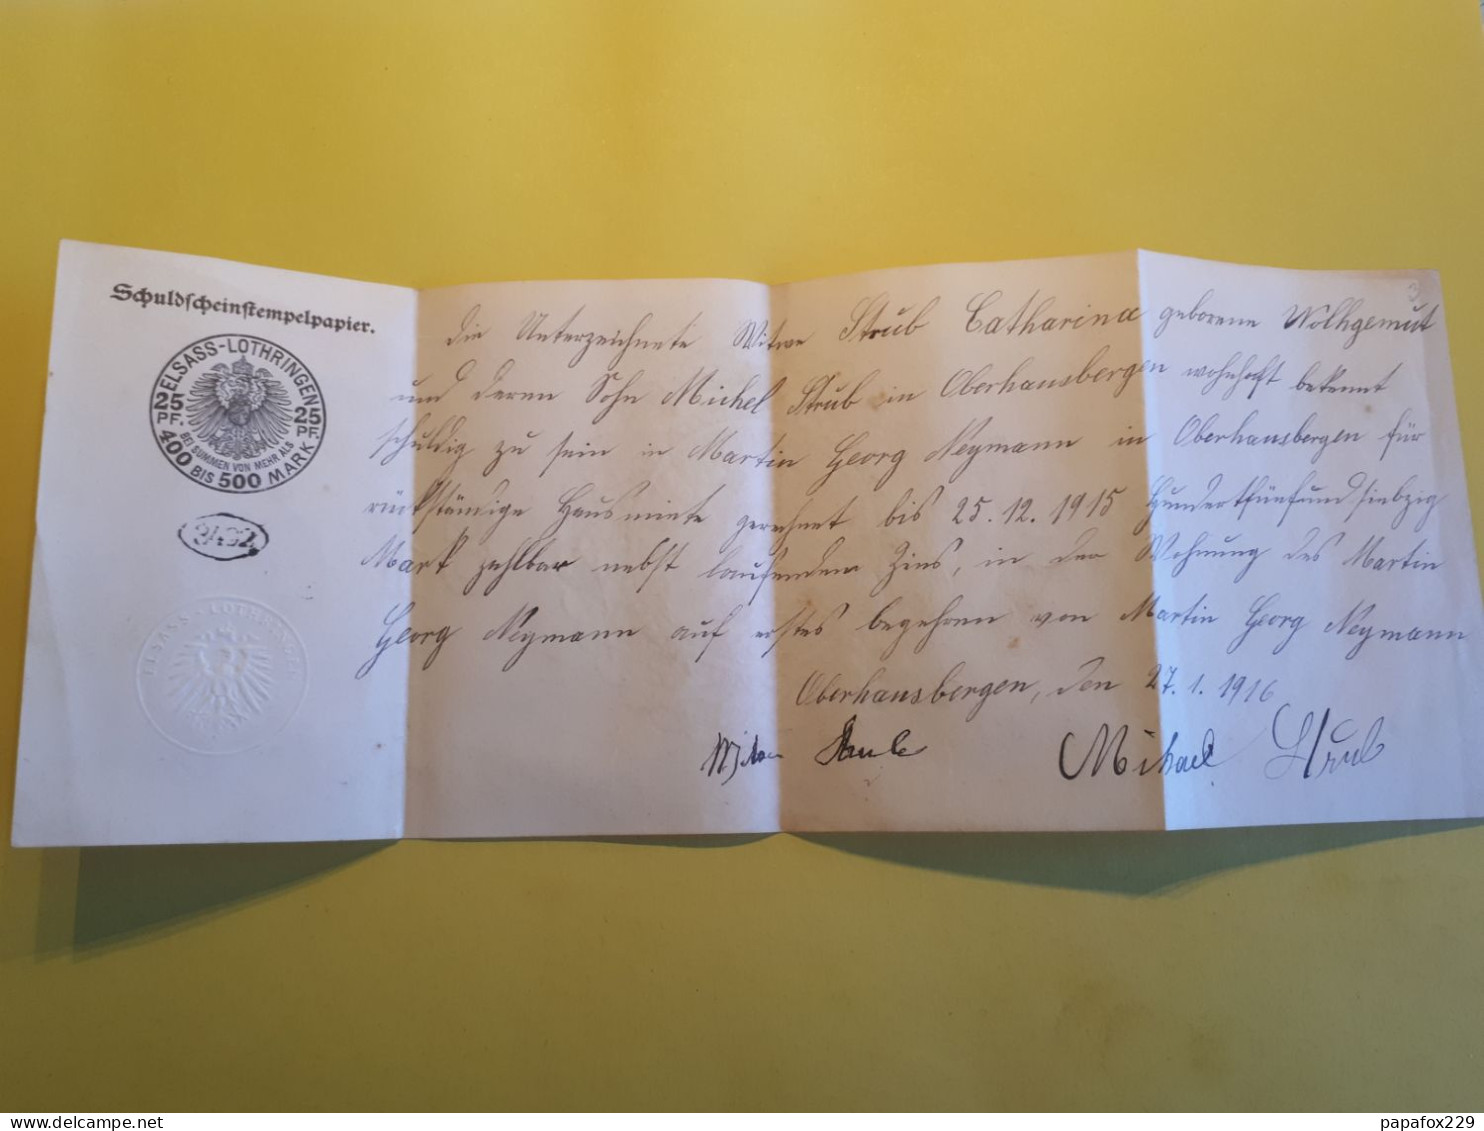 Schuldscheinstempelpapier.
ELSASS-LOTHRINGEN
25 PF.
25 PF.
BEI SUMMEN VON MEHR ALS
400 BIS 500 MARK
ELSASS-LOTHRINGEN
3
Die Unterzeichnete Witwe Strub Catharina geborene Wolhgemut
und deren Sohn Michel Strub in Oberhausbergen wohnhaft bekennt
schuldig zu sein in Martin Georg Neymann in Oberhausbergen für
rückständige Hausmiete gerechnet bis 25.12.1915 Hundertfünfundsiebzig
Mark zahlbar nebst laufendem Zins, in der Wohnung des Martin
Georg Neymann auf erstes begehren von Martin Georg Neymann
Oberhausbergen, den 27.1.1916
Witwe Strub
Michael Strub
papafox229